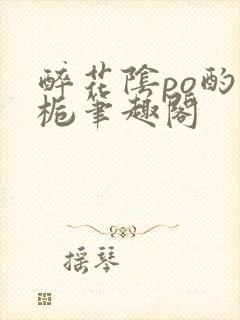 醉花陰po酌
栀筆趣閣
摇琴